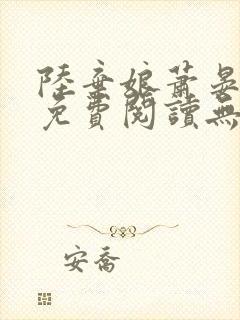 陸棄娘蕭晏
免費閱讀無
安喬